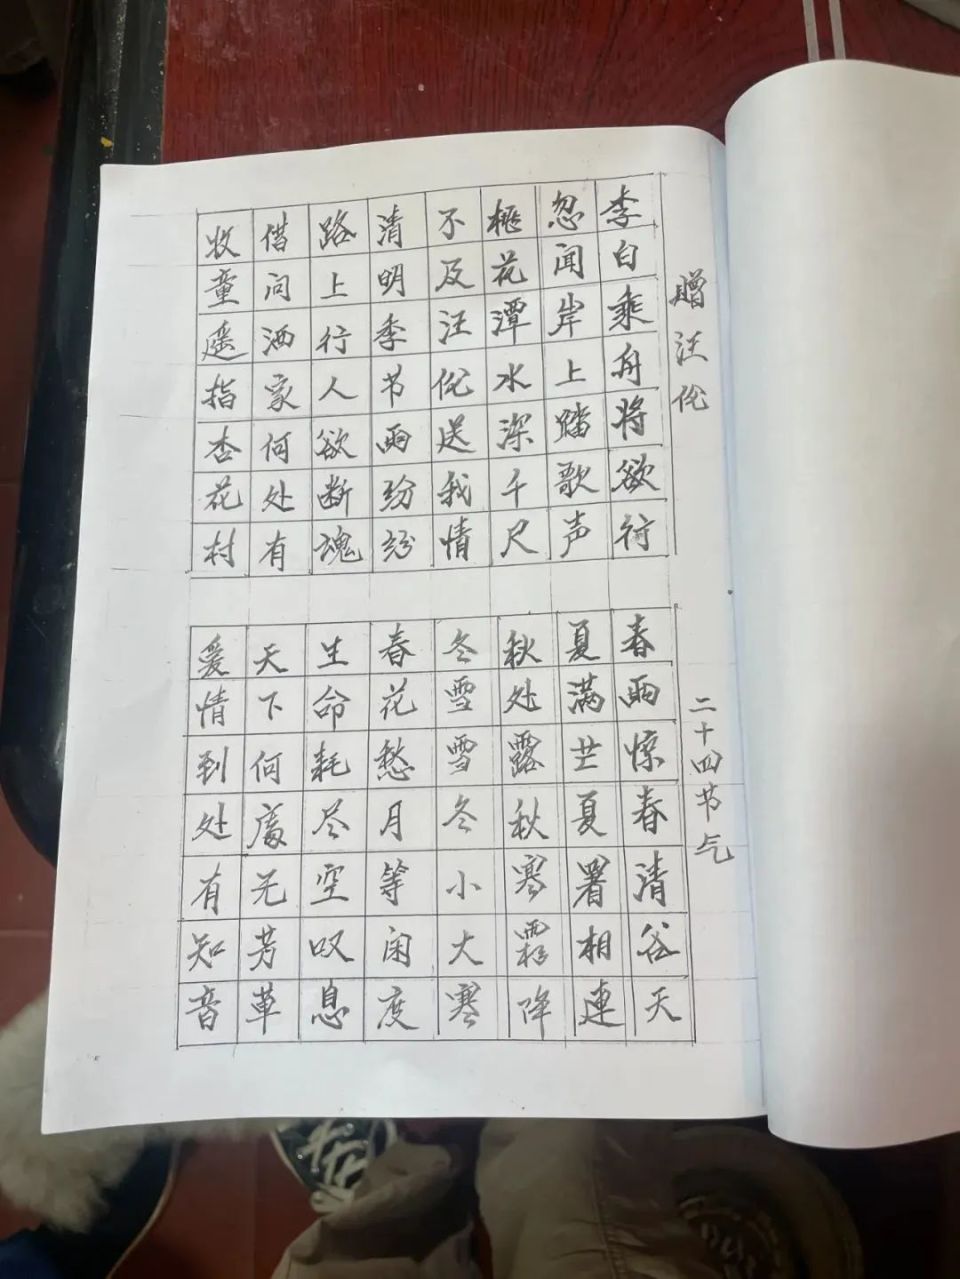 赠汪伦
李白乘舟将欲行
忽闻岸上踏歌声
桃花潭水深千尺
不及汪伦送我情
清明季节雨纷纷
路上行人欲断魂
借问酒家何处有
牧童遥指杏花村
二十四节气
春雨惊春清谷天
夏满芒夏署相连
秋处露秋寒霜降
冬雪雪冬小大寒
春花愁月等闲度
生命耗尽空叹息
天下何處无芳草
爱情到处有知音